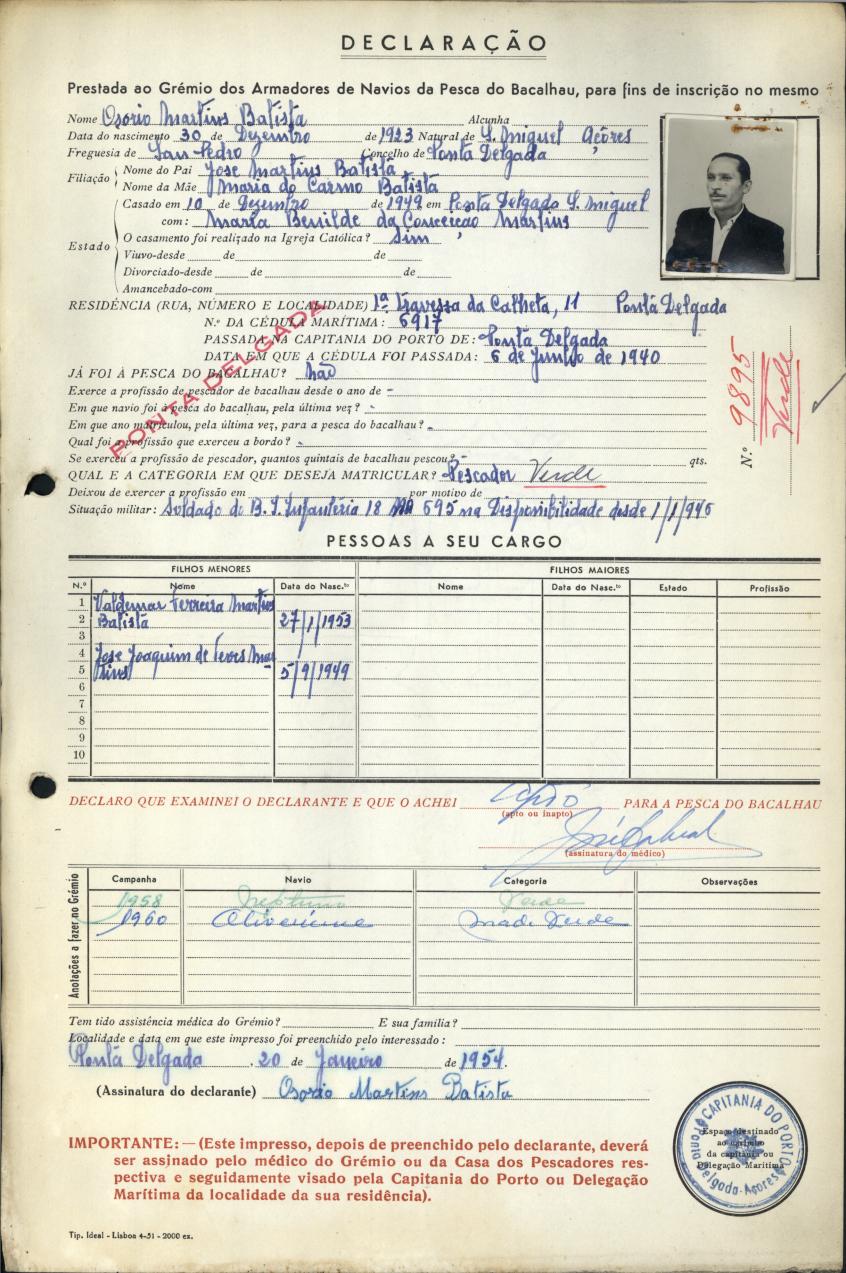 DECLARAÇÃO
Prestada ao Grémio dos Armadores de Navios da Pesca do Bacalhau, para fins de inscrição no mesmo
Nome Osorio Martins Batista Alcunha
Data do nascimento 30 de Dezembro de 1923 Natural de S. Miguel Açôres
Freguesia de San Pedro Concelho de Ponta Delgada
Filiação
Nome do Pai Jose Martins Batista
Nome da Mãe Maria do Carmo Batista
Estado
Casado em 10 de Dezembro de 1949 em Ponta Delgada S. Miguel
com: Maria Benilde da Conceicao Martins
O casamento foi realizado na Igreja Católica? Sim
Viuvo-desde de de
Divorciado-desde de de
Amancebado-com
RESIDÊNCIA (RUA, NÚMERO E LOCALIDADE) 1ª Travessa da Calheta, 11 Ponta Delgada
N.º DA CÉDULA MARÍTIMA: 6917
PASSADA NA CAPITANIA DO PORTO DE: Ponta Delgada
DATA EM QUE A CÉDULA FOI PASSADA: 6 de Junho de 1940
PONTA DELGADA
JÁ FOI À PESCA DO BACALHAU? Não
Exerce a profissão de pescador de bacalhau desde o ano de -
Em que navio foi à pesca do bacalhau, pela última vez? -
Em que ano matriculou, pela última vez, para a pesca do bacalhau? -
Qual foi a profissão que exerceu a bordo? -
Se exerceu a profissão de pescador, quantos quintais de bacalhau pescou? - qts.
QUAL E A CATEGORIA EM QUE DESEJA MATRICULAR? Pescador Verde
Deixou de exercer a profissão em por motivo de
Situação militar: Soldado do B. I. Infantéria 18 695 na Disponibilidade desde 1/1/946
N.º 9895
Verde
PESSOAS A SEU CARGO
FILHOS MENORES FILHOS MAIORES
N.º Nome Data do Nasc.to Nome Data do Nasc.to Estado Profissão
1 Valdemar Ferreira Martins
2 Batista 27/1/1953
3
4 Jose Joaquim de Teves Mar
5 tins 5/9/1949
6
7
8
9
10
DECLARO QUE EXAMINEI O DECLARANTE E QUE O ACHEI apto PARA A PESCA DO BACALHAU
(apto ou inapto)
José Cabral
(assinatura do médico)
Anotações a fazer no Grémio
Campanha Navio Categoria Observações
1958 Neptuno Verde
1960 Oliveirense Mad. Verde
Tem tido assistência médica do Grémio? E sua família?
Localidade e data em que este impresso foi preenchido pelo interessado:
Ponta Delgada, 20 de Janeiro de 1954.
(Assinatura do declarante) Osorio Martins Batista
IMPORTANTE: — (Este impresso, depois de preenchido pelo declarante, deverá
ser assinado pelo médico do Grémio ou da Casa dos Pescadores res-
pectiva e seguidamente visado pela Capitania do Porto ou Delegação
Marítima da localidade da sua residência).
CAPITANIA DO PORTO
Ponta Delgada-Açores
Espaço destinado
ao carimbo
da capitania ou
Delegação Marítima
Tip. Ideal - Lisboa 4-51 - 2000 ex.